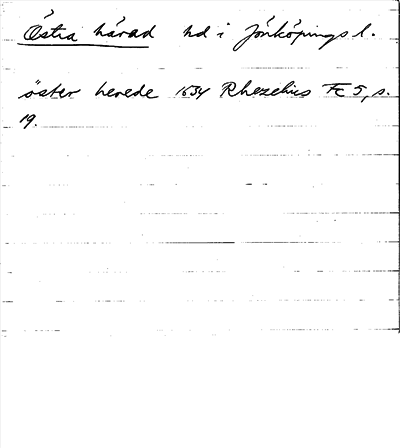 Östra härad hd i Jönköpings l.
öster herede 1634 Rhezelius Fc 5, s.
19.